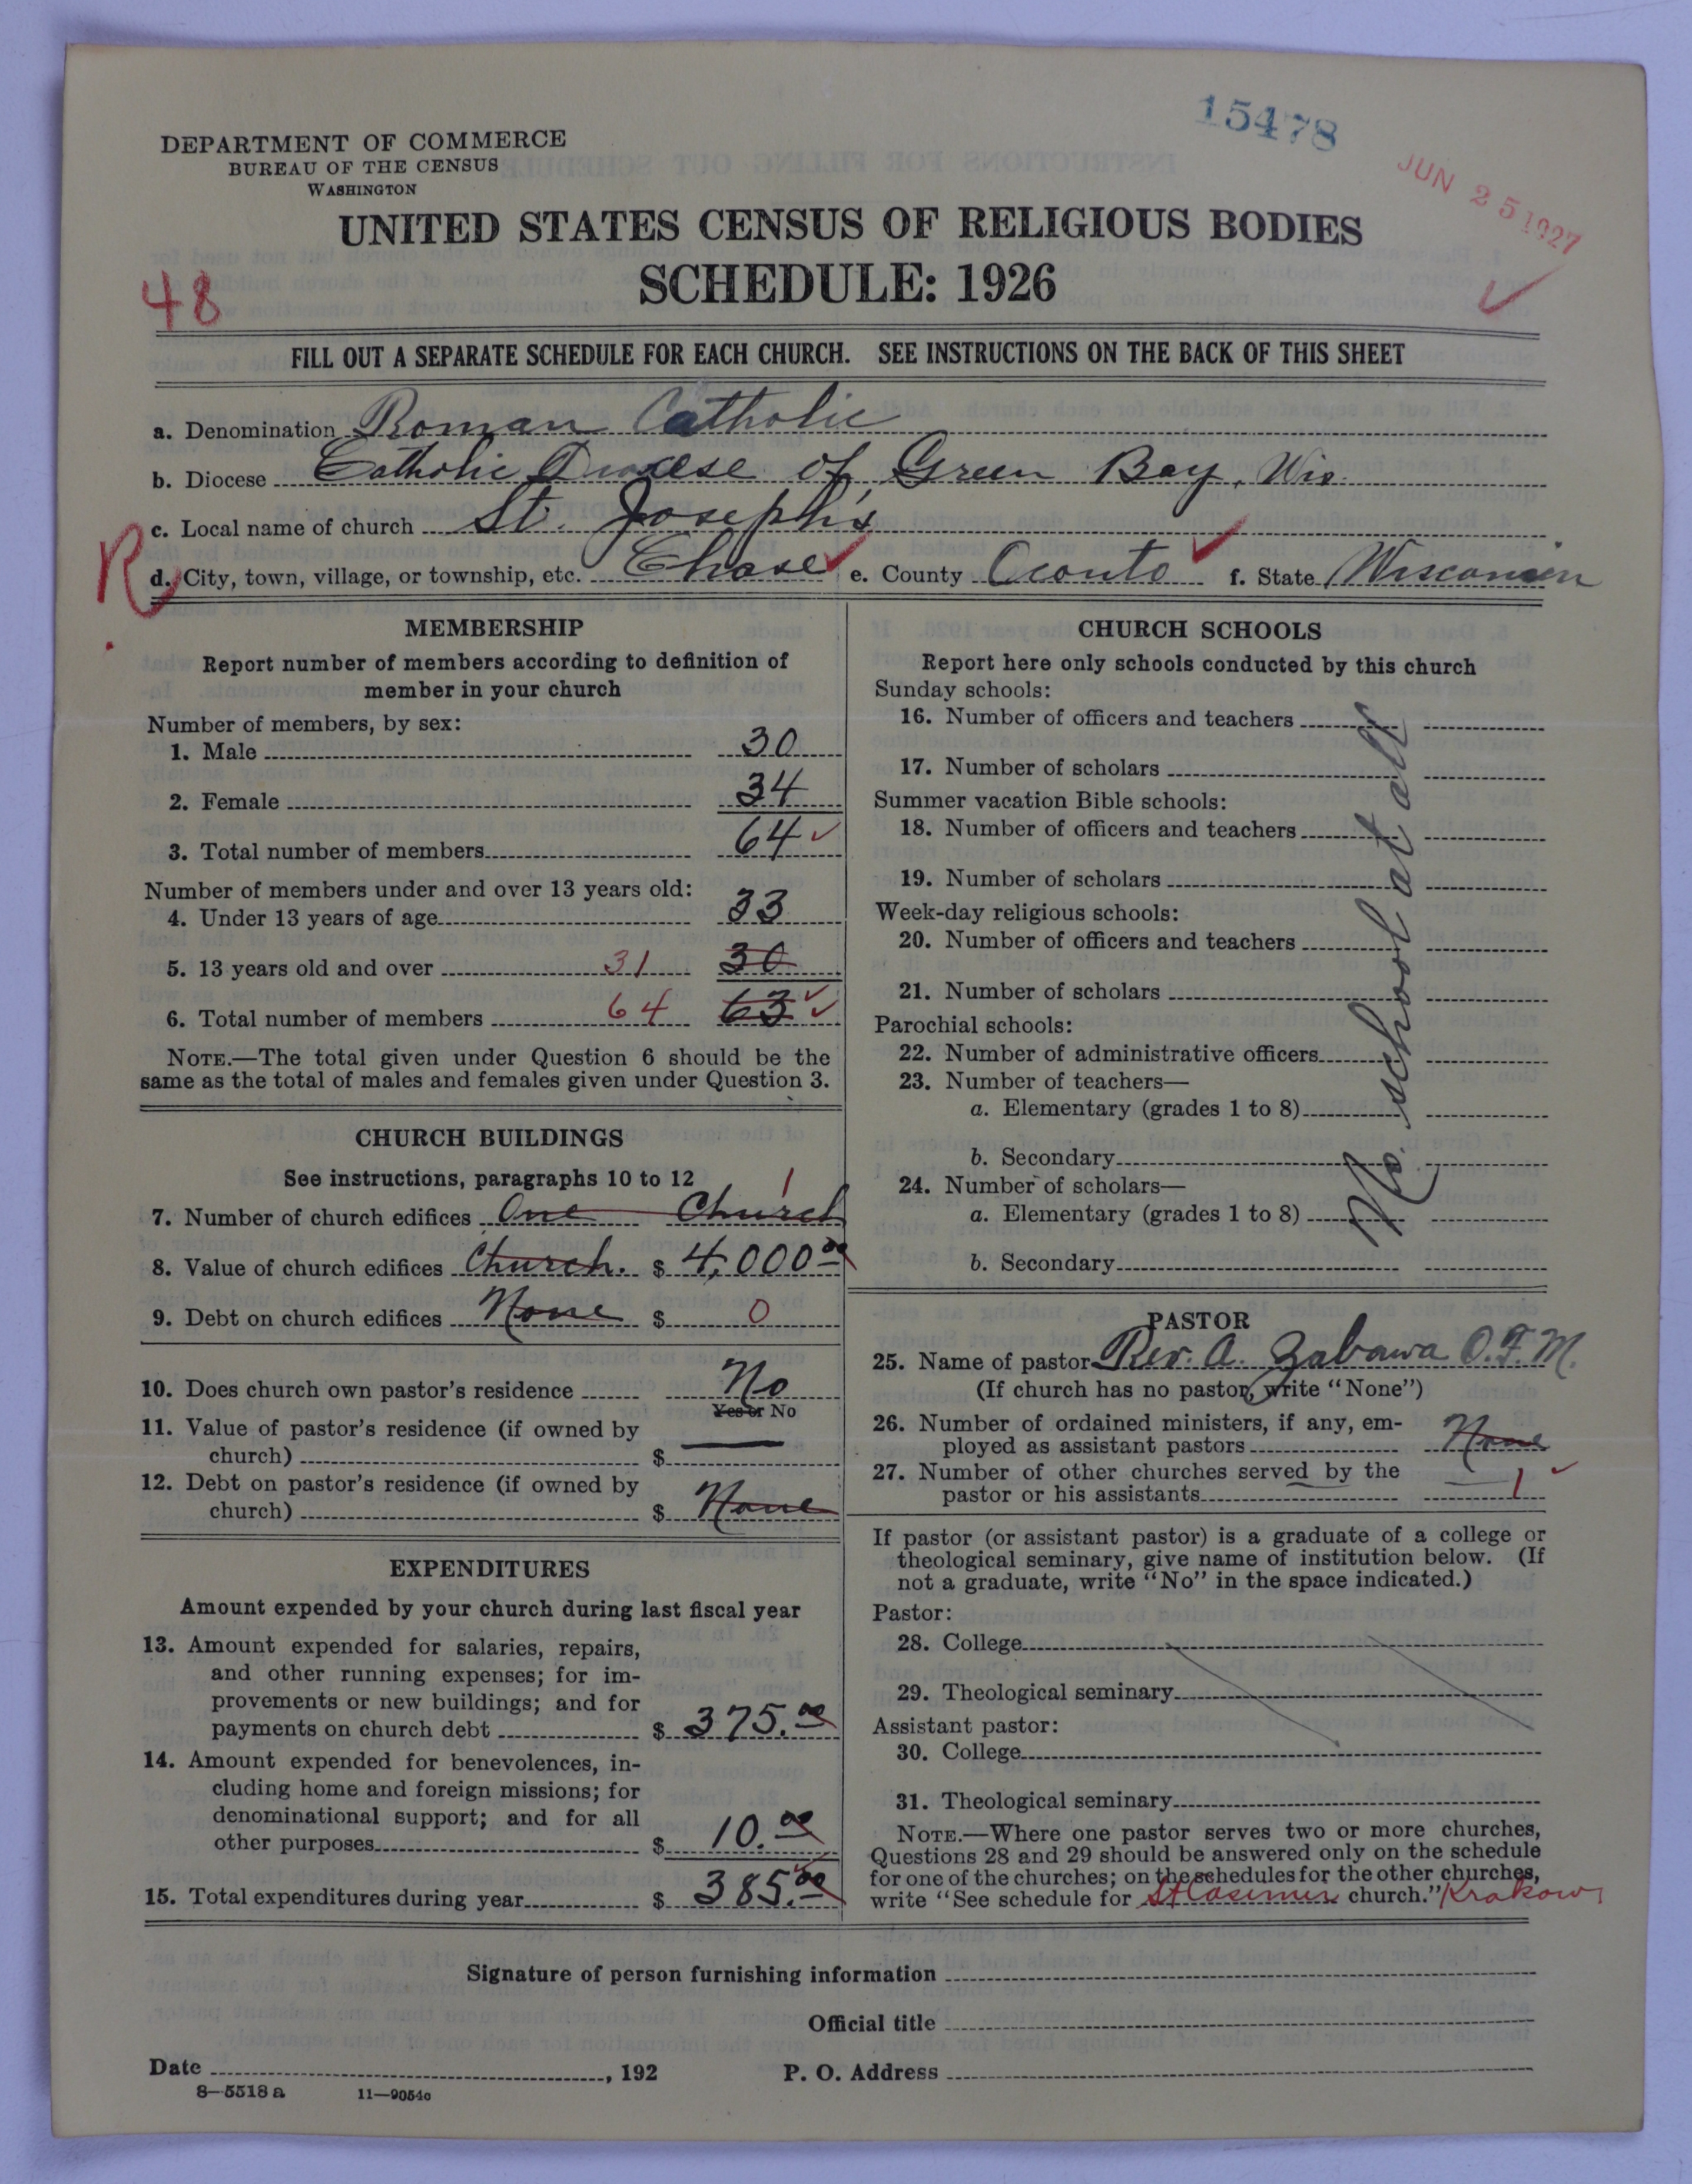 15478
JUN 25 1927
DEPARTMENT OF COMMERCE
BUREAU OF THE CENSUS
WASHINGTON
UNITED STATES CENSUS OF RELIGIOUS BODIES
SCHEDULE: 1926
48
FILL OUT A SEPARATE SCHEDULE FOR EACH CHURCH. SEE INSTRUCTIONS ON THE BACK OF THIS SHEET
a. Denomination Roman Catholic
b. Diocese Catholic Diocese of Green Bay, Wis.
c. Local name of church St. Joseph's
R
d. City, town, village, or township, etc. Chase e. County Oconto f. State Wisconsin
MEMBERSHIP
Report number of members according to definition of
member in your church
Number of members, by sex:
1. Male 30
2. Female 34
3. Total number of members 64
Number of members under and over 13 years old:
4. Under 13 years of age 33
5. 13 years old and over 31 30
6. Total number of members 64 63
NOTE.—The total given under Question 6 should be the
same as the total of males and females given under Question 3.
CHURCH BUILDINGS
See instructions, paragraphs 10 to 12
7. Number of church edifices One Church 1
8. Value of church edifices Church. $ 4,000.00
9. Debt on church edifices None $ 0
10. Does church own pastor's residence No
Yes or No
11. Value of pastor's residence (if owned by
church) $ —
12. Debt on pastor's residence (if owned by
church) $ None
EXPENDITURES
Amount expended by your church during last fiscal year
13. Amount expended for salaries, repairs,
and other running expenses; for im-
provements or new buildings; and for
payments on church debt $ 375.00
14. Amount expended for benevolences, in-
cluding home and foreign missions; for
denominational support; and for all
other purposes $ 10.00
15. Total expenditures during year $ 385.00
CHURCH SCHOOLS
Report here only schools conducted by this church
Sunday schools:
16. Number of officers and teachers
17. Number of scholars
Summer vacation Bible schools:
18. Number of officers and teachers
19. Number of scholars
Week-day religious schools:
20. Number of officers and teachers
21. Number of scholars
Parochial schools:
22. Number of administrative officers
23. Number of teachers—
a. Elementary (grades 1 to 8)
b. Secondary
24. Number of scholars—
a. Elementary (grades 1 to 8)
b. Secondary
No school at all
PASTOR
25. Name of pastor Rev. A. Zabawa O.F.M.
(If church has no pastor, write "None")
26. Number of ordained ministers, if any, em-
ployed as assistant pastors None
27. Number of other churches served by the
pastor or his assistants — 1
If pastor (or assistant pastor) is a graduate of a college or
theological seminary, give name of institution below. (If
not a graduate, write "No" in the space indicated.)
Pastor:
28. College
29. Theological seminary
Assistant pastor:
30. College
31. Theological seminary
NOTE.—Where one pastor serves two or more churches,
Questions 28 and 29 should be answered only on the schedule
for one of the churches; on the schedules for the other churches,
write "See schedule for St Casimir church." Krakow
Signature of person furnishing information
Official title
Date , 192 P. O. Address
8—5518 a 11—9054c